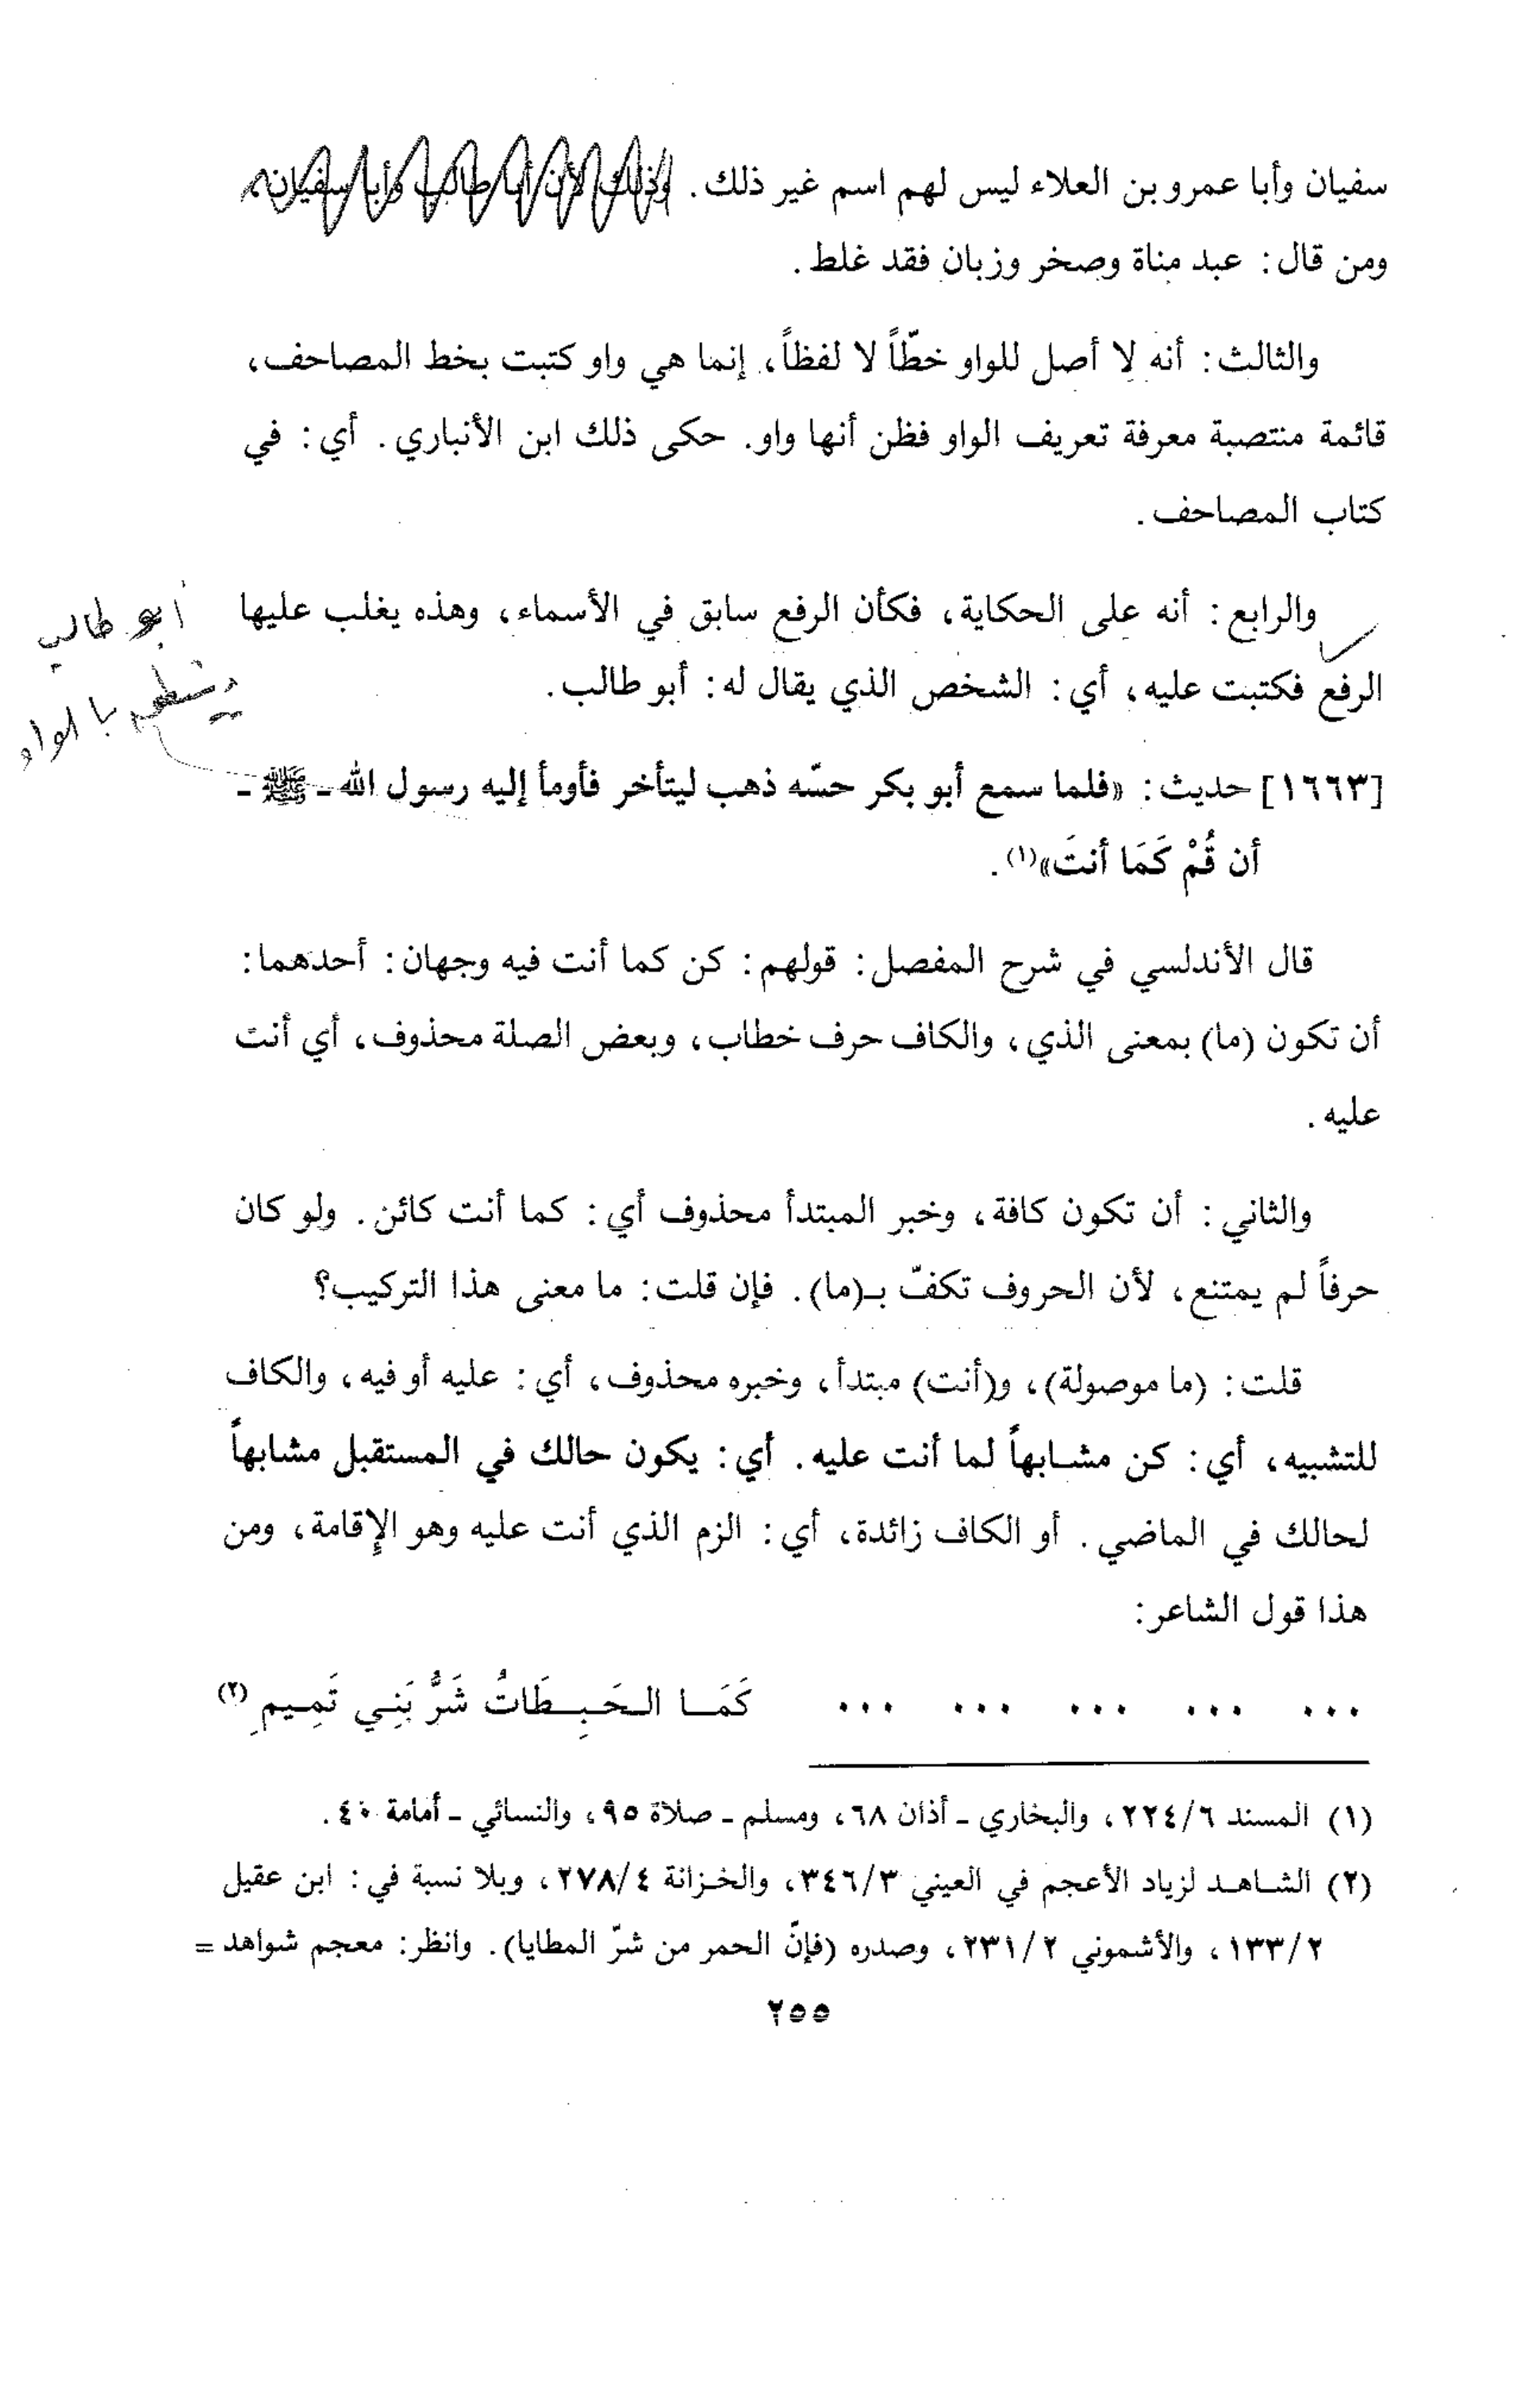 سفيان وأبا عمرو بن العلاء ليس لهم اسم غير ذلك. وذلك لأن أبا طالب وأبا سفيان،
ومن قال: عبد مناة وصخر وزبان فقد غلط.
والثالث: أنه لا أصل للواو خطّاً لا لفظاً، إنما هي واو كتبت بخط المصاحف،
قائمة منتصبة معرفة تعريف الواو فظن أنها واو. حكى ذلك ابن الأنباري. أي: في
كتاب المصاحف.
والرابع: أنه على الحكاية، فكأن الرفع سابق في الأسماء، وهذه يغلب عليها
الرفع فكتبت عليه، أي: الشخص الذي يقال له: أبو طالب.
أبو طالب
بالواو
[١٦٦٣] حديث: «فلما سمع أبو بكر حسّه ذهب ليتأخر فأومأ إليه رسول الله ـ ﷺ ـ
أن قُمْ كَمَا أنتَ»(١).
قال الأندلسي في شرح المفصل: قولهم: كن كما أنت فيه وجهان: أحدهما:
أن تكون (ما) بمعنى الذي، والكاف حرف خطاب، وبعض الصلة محذوف، أي أنت
عليه.
والثاني: أن تكون كافة، وخبر المبتدأ محذوف أي: كما أنت كائن. ولو كان
حرفاً لم يمتنع، لأن الحروف تكفّ بـ(ما). فإن قلت: ما معنى هذا التركيب؟
قلت: (ما موصولة)، و(أنت) مبتدأ، وخبره محذوف، أي: عليه أو فيه، والكاف
للتشبيه، أي: كن مشابهاً لما أنت عليه. أي: يكون حالك في المستقبل مشابهاً
لحالك في الماضي. أو الكاف زائدة، أي: الزم الذي أنت عليه وهو الإقامة، ومن
هذا قول الشاعر:
... ... ... ... ... كَمَا الحَبِطَاتُ شَرُّ بَنِي تَمِيمِ (٢)
(١) المسند ٢٢٤/٦، والبخاري ـ أذان ٦٨، ومسلم ـ صلاة ٩٥، والنسائي ـ أمامة ٤٠.
(٢) الشاهد لزياد الأعجم في العيني ٣٤٦/٣، والخزانة ٢٧٨/٤، وبلا نسبة في: ابن عقيل
١٣٣/٢، والأشموني ٢٣١/٢، وصدره (فإنّ الحمر من شرّ المطايا). وانظر: معجم شواهد =
٢٥٥